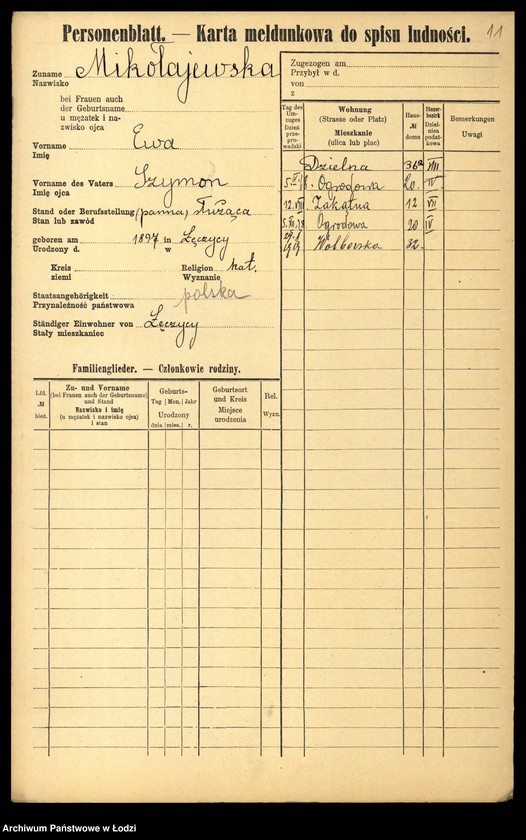 Personenblatt. — Karta meldunkowa do spisu ludności.
11
Zuname Mikołajewska
Nazwisko
bei Frauen auch
der Geburtsname
u mężatek i na-
zwisko ojca
Vorname Ewa
Imię
Vorname des Vaters Szymon
Imię ojca
Stand oder Berufsstellung (panna) służąca
Stan lub zawód
geboren am 1897 in Łęczycy
Urodzony d. w
Kreis Religion kat.
ziemi Wyznanie
Staatsangehörigkeit polska
Przynależność państwowa
Ständiger Einwohner von Łęczycy
Stały mieszkaniec
Familienglieder. — Członkowie rodziny.
Lfd. № bież.
Zu- und Vorname
(bei Frauen auch der Geburtsname)
und Stand
Nazwisko i imię
(u mężatek i nazwisko ojca)
i stan
Geburts-
Tag Mon. Jahr
Urodzony
dnia mies. r.
Geburtsort
und Kreis
Miejsce
urodzenia
Rel.
Wyzn.
Zugezogen am
Przybył w d.
von
z
Tag des
Um-
zuges
Dzień
prze-
prowadzki
Wohnung
(Strasse oder Platz)
Mieszkanie
(ulica lub plac)
Haus-
№
domu
Steuer-
bezirk
Dziel-
nica
podat-
kowa
Bemerkungen
Uwagi
Dzielna 36a VIII
Ogrodowa 20. IV.
Zakątna 12 VII
Ogrodowa 20 IV
Wólborska 32.
Archiwum Państwowe w Łodzi